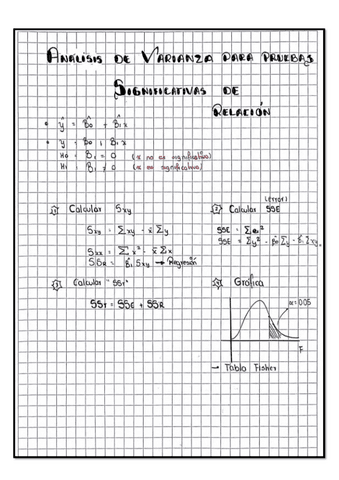 ANÁLISIS DE VARIANZA PARA PRUEBAS
SIGNIFICATIVAS DE
RELACIÓN
• ŷ = B̂0 + B̂1x
• y = B0 + B1x
H0 = B1 = 0 (x no es significativa)
H1 = B1 ≠ 0 (x es significativa)
1 Calcular Sxy
Sxy = Σxy - x̄ Σy
Sxx = Σx² - x̄ Σx
SSR = B̂1 Sxy → Regresión
2 Calcular SSE (error)
SSE = Σei²
SSE = Σy² - B̂0 Σy - B̂1 Σxy
3 Calcular SST
SST = SSE + SSR
Gráfica
α=0.05
F
→ Tabla Fisher